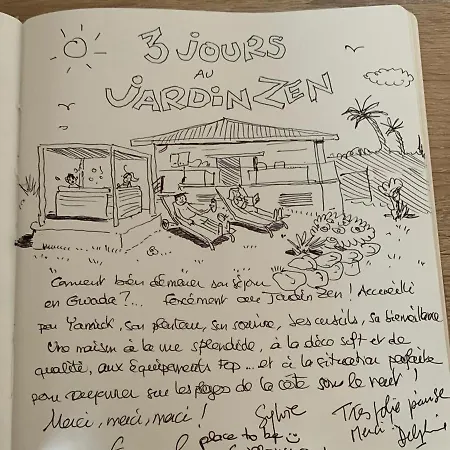 3 JOURS
AU
JARDIN ZEN
Comment bien démarrer son séjour
en Gwada ?... forcément au Jardin Zen ! Accueilli
par Yannick, son planteur, son sourire, ses conseils, sa bienveillance
Une maison à la vue splendide, à la déco soft et de
qualité, aux équipements top... et à la situation parfaite
pour rayonner sur les plages de la côte sous le vent !
Merci, merci, merci !
Sylvie
Très jolie pause
Merci Delphine
place to be